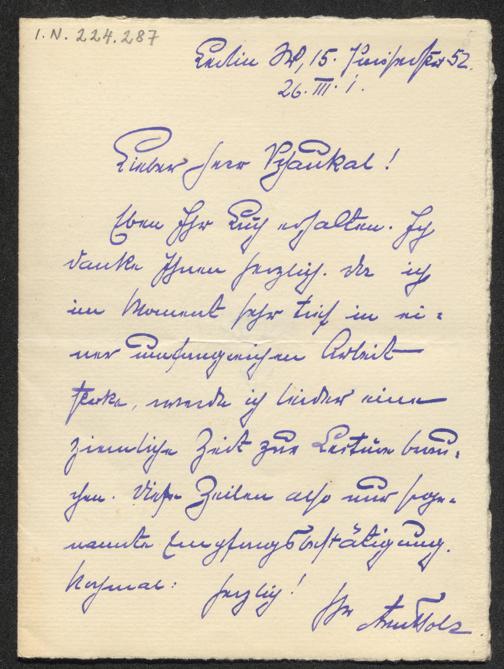 I. N. 224.287
Berlin W, 15. Pariserstr 52.
26. III. 1.
Lieber Herr Schaukal!
Eben Ihr Buch erhalten. Ich
danke Ihnen herzlich. Da ich
im Moment sehr tief in ei-
ner umfangreichen Arbeit
stecke, werde ich leider eine
ziemliche Zeit zur Lectüre brau-
chen. Diese Zeilen also nur soge-
nannte Empfangsbestätigung.
Nochmal: herzlich!
Ihr Arno Holz